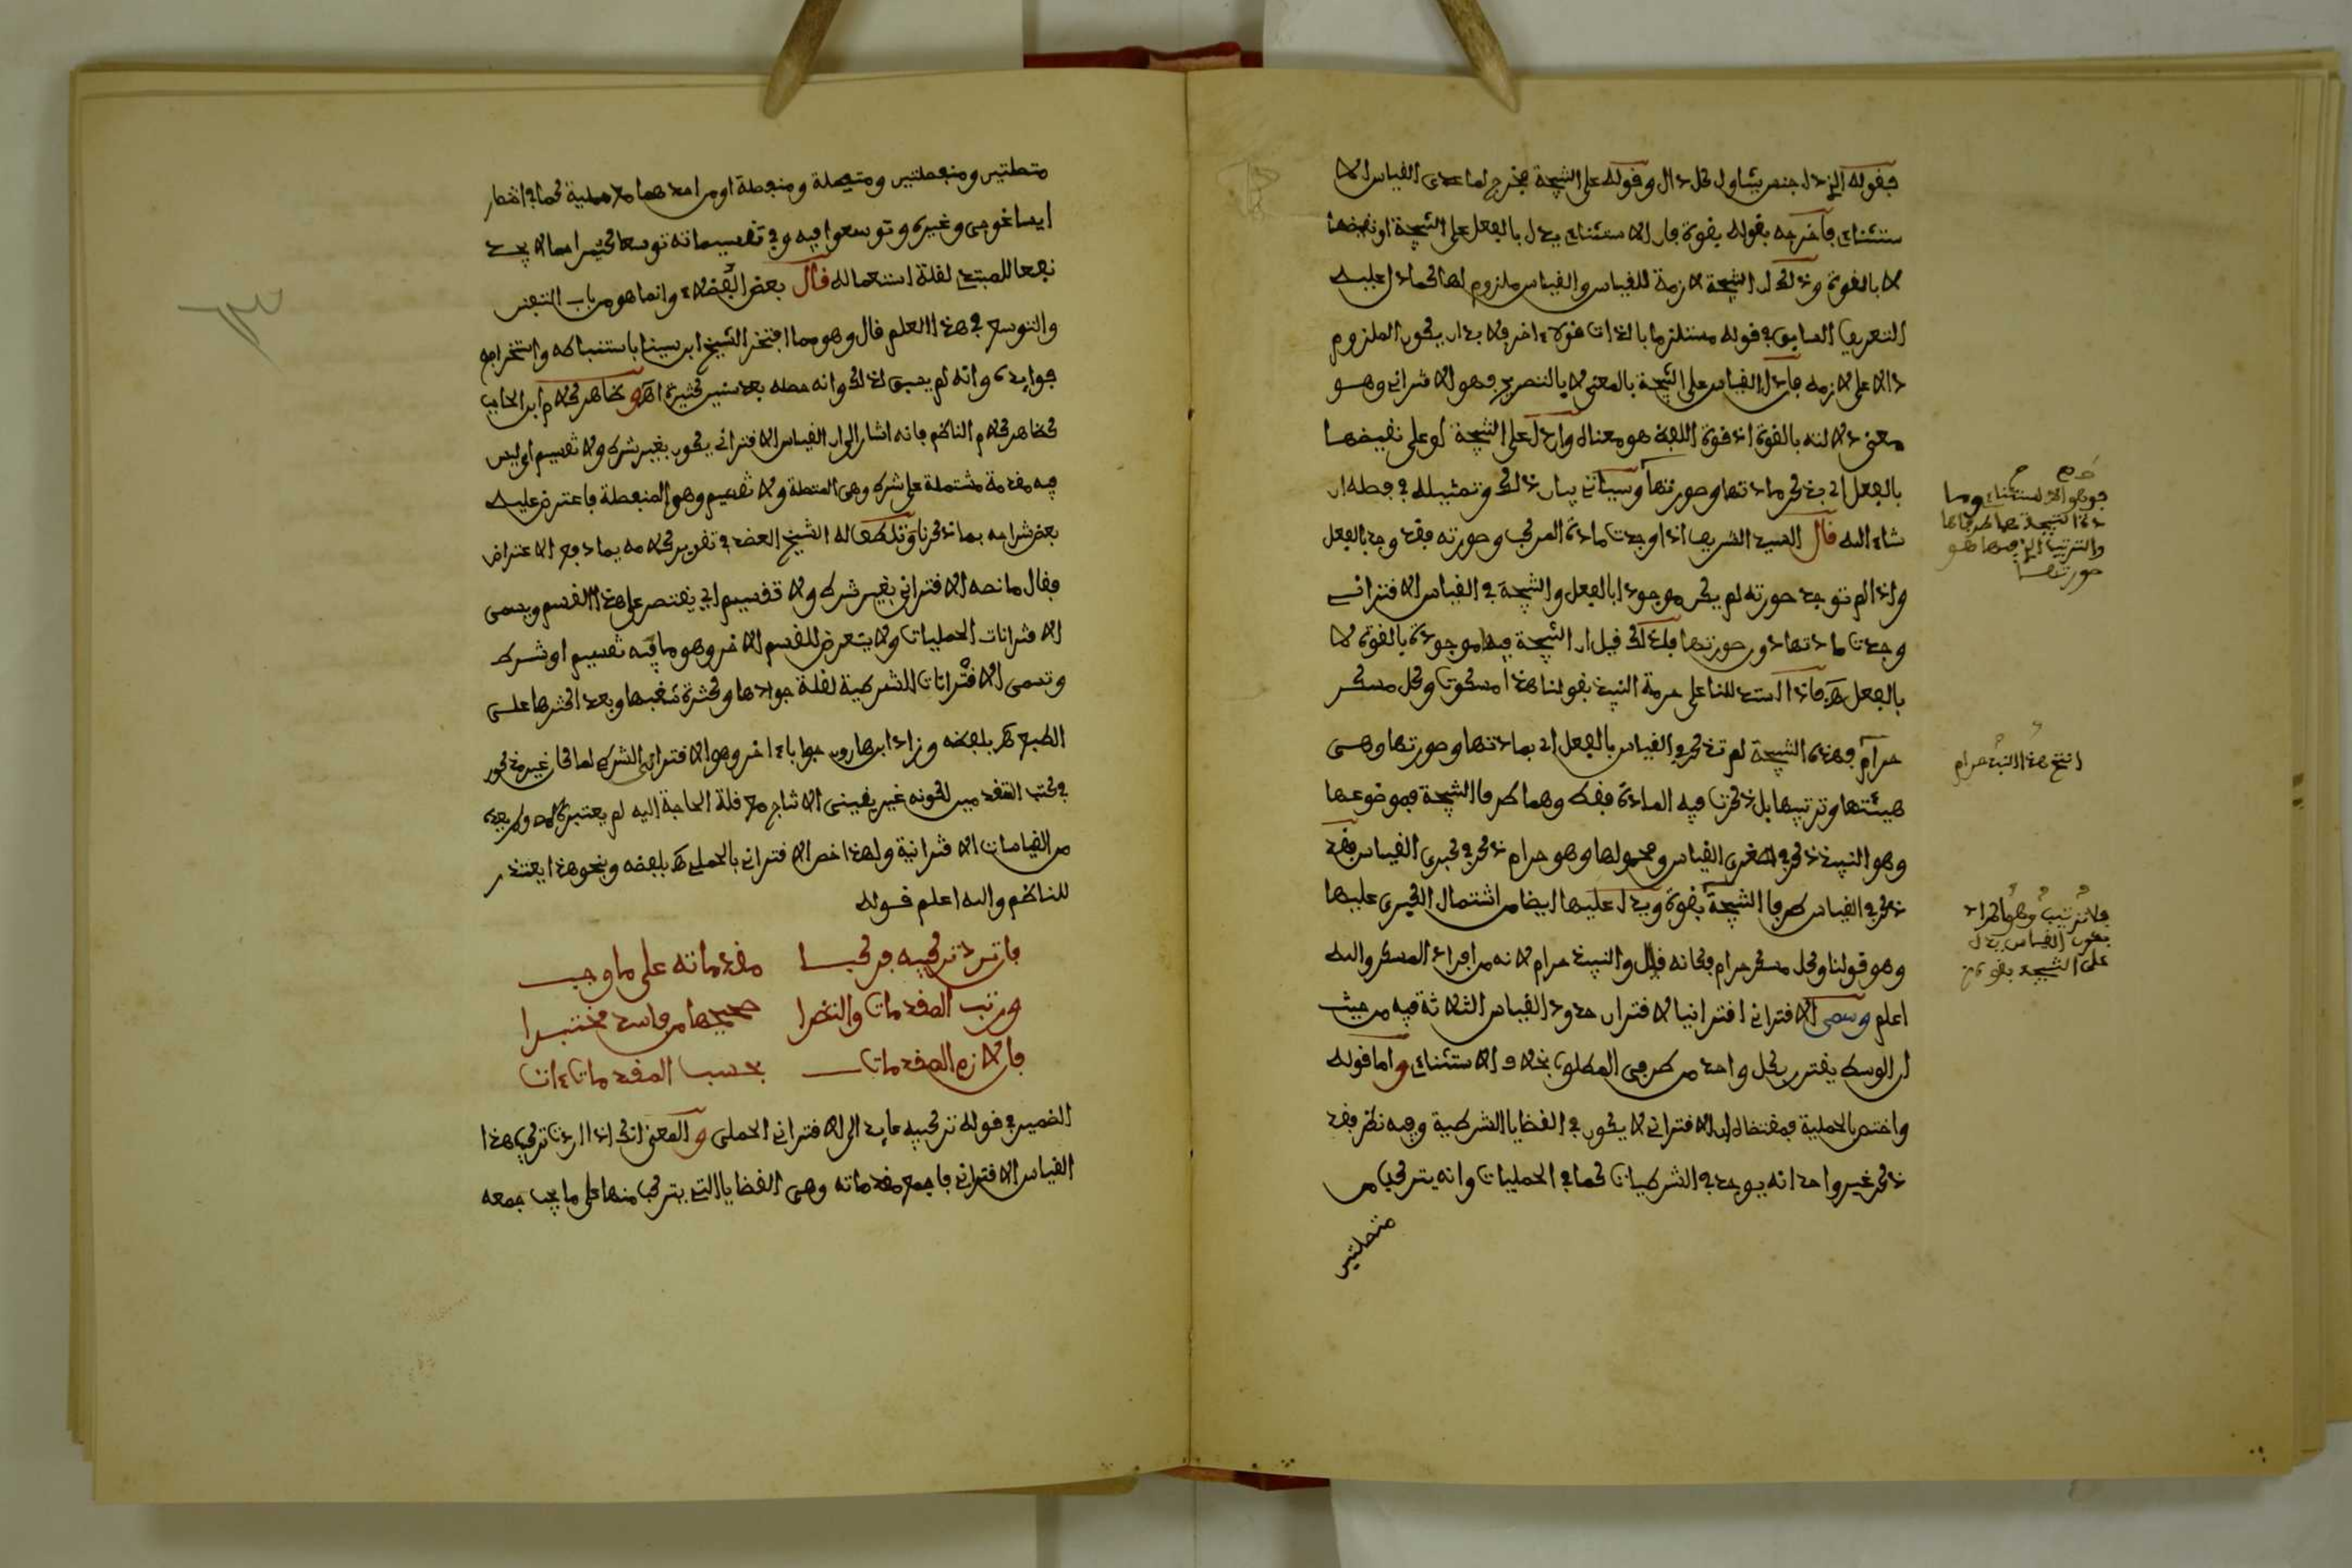 فقوله الذي دل جنس يتناول كل دال وقوله على النتيجة مخرج لما عدى القياس الا
ستثناءي فاخرجه بقوله بقوة فان الاستثناءي يدل بالفعل على النتيجة او نقيضها
لا بالقوة وذلك ان النتيجة لازمة للقياس والقياس ملزوم لها كما دل عليه
التعريف السابق في قوله مستلزما بالذات قولا ءاخر ولا بد ان يكون الملزوم
دالا على لازمه فان دل القياس على النتيجة بالمعنى لا بالتصريح فهو الاقتراني وهو
معنى دلالته بالقوة اذ قوة اللفظ هو معناه وان دل على النتيجة او على نقيضها
بالفعل اي بذكر مادتها وصورتها وسياتي بيان ذلك وتمثيله في فصله ان
شاء الله قال السيد الشريف اذا وجدت مادة المركب وصورته فقد وجد بالفعل
واذا لم توجد صورته لم يكن موجودا بالفعل والنتيجة في القياس الاقتراني
وجدت مادتها دون صورتها فلذلك قيل ان النتيجة فيها موجودة بالقوة لا
بالفعل هـ فاذا استدللنا على حرمة النبيذ بقولنا هذا مسكر وكل مسكر
حرام فهذه النتيجة لم تذكر في القياس بالفعل اي بمادتها وصورتها وهي
هيئتها وترتيبها بل ذكرنا فيه المادة فقط وهما طرفا النتيجة فموضوعها
وهو النبيذ ذكر في صغرى القياس ومحمولها وهو حرام ذكر في كبرى القياس فقد
ذكر في القياس طرفا النتيجة بقوة ويدل عليها ايضا من اشتمال الكبرى عليها
وهو قولنا وكل مسكر حرام فكانه قال والنبيذ حرام لانه من افراد المسكر والله
اعلم وسمى الاقتراني اقترانيا لاقتران حدود القياس الثلاثة فيه من حيث
ان الوسط يقترن بكل واحد من طرفي المطلوب بخلاف الاستثناءي واما قوله
واختص بالحملية فمقتضاه ان الاقتراني لا يكون في القضايا الشرطية وفيه نظر فقد
ذكر غير واحد انه يوجد في الشرطيات كما في الحمليات وانه يتركب من
متصلتين
فهو الاستثناءي وما
دة النتيجة هما طرفاها
والترتيب الذي فيها هو
صورتها
انتج هذا النبيذ حرام
بلا ترتيب وهو المراد
بكون القياس يدل
على النتيجة بقوة
متصلتين ومنفصلتين ومتصلة ومنفصلة او من احدهما مع حملية كما في اختصار
ايساغوجي وغيره وتوسعوا فيه وفي تقسيماته توسعا كثيرا مما لا يجدي
نفعا للمبتدي لقلة استعماله قال بعض الفضلاء وانما هو من باب التفنن
والتوسع في هذا العلم قال وهو مما افتخر الشيخ ابن سينا باستنباطه واستخراج
فوايده وانه لم يسبق لذلك وانه حصله بعد سنين كثيرة اهـ وظاهر كلام ابن الحاجب
كظاهر كلام الناظم فانه اشار الى ان القياس الاقتراني يكون بغير شرط ولا تقسيم اي ليس
فيه مقدمة مشتملة على شرط وهي المتصلة ولا تقسيم وهو المنفصلة فاعترض عليه
بعض شراحه بما ذكرنا وتلطف له الشيخ العضد في تقرير كلامه بما دفع الاعتراض
فقال ما نصه الاقتراني بغير شرط ولا تقسيم اي يقتصر على هذا القسم ويسمى
الاقترانات الحمليات ولا يتعرض للقسم الاخر وهو ما فيه تقسيم او شرط
وتسمى الاقترانات الشرطية لقلة جوادها وكثرة شغبها وبعد اكثرها على
الطبع هـ بلفظه وزاد ابن هارون جوابا ءاخر وهو الاقتراني الشرطي لما كان غير مذكور
في كتب المتقدمين لكونه غير يقيني الانتاج مع قلة الحاجة اليه لم يعتبره ولم يعده
من القياسات الاقترانية ولهذا خص الاقتراني بالحملي هـ بلفظه وبنحو هذا يعتذر
للناظم والله اعلم قوله
فان ترد تركيبه فركبا مقدماته على ما وجب
ورتب المقدمات وانظرا صحيحها من فاسد مختبرا
فان لازم المقدمات بحسب المقدمات ءات
الضمير في قوله تركيبه عايد الى الاقتراني الحملي والمعنى انك اذا اردت تركيب هذا
القياس الاقتراني فاجمع مقدماته وهي القضايا التي يتركب منها على ما يجب جمعه